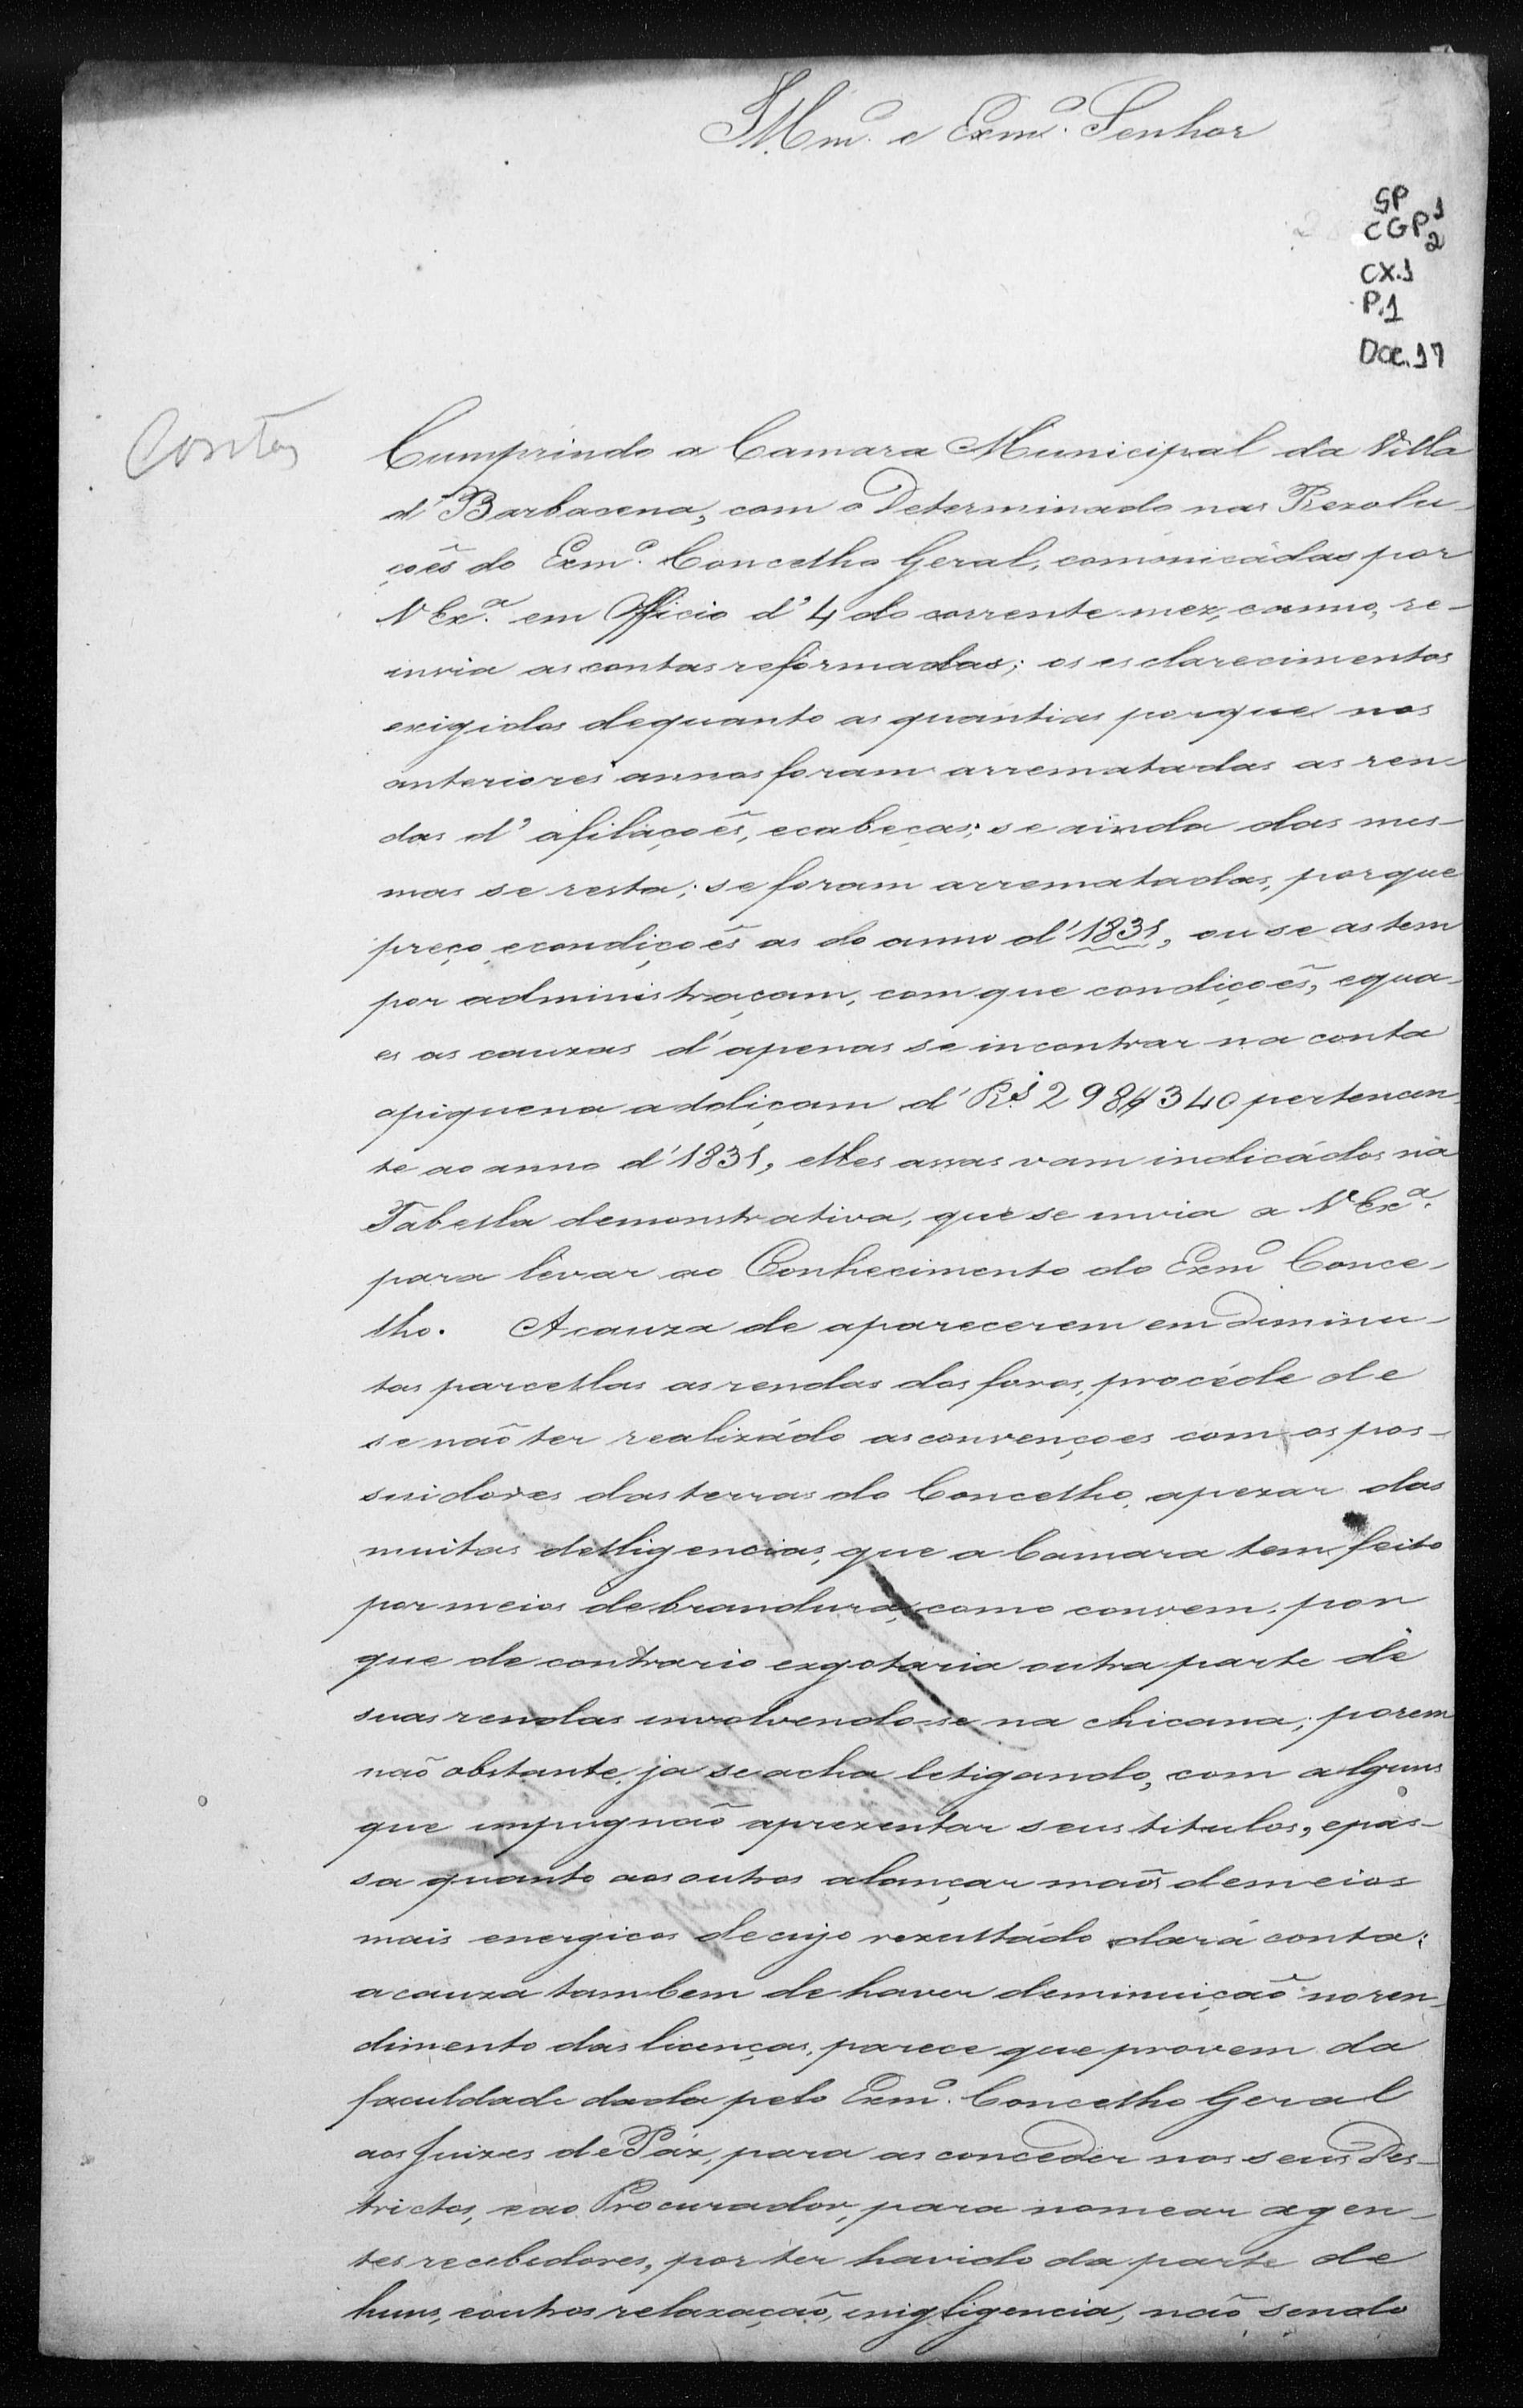 Illmº. e Exmº. Senhor
GP 1
CGP 2
CX.1
P.1
Doc. 17
Contas
Cumprindo a Camara Municipal da Villa
d'Barbacena, com o Determinado nas Rezolu-
çoẽs do Exmº. Concelho Geral, comonicádas por
V Exª. em Officio d'4 do corrente mez, e anno, re-
invia as contas reformadas; os esclarecimentos
exigidos dequanto as quantias porque nos
anteriores annos foram arrematadas as ren-
das d'afilaçoẽs, ecabeças; se ainda das mes-
mas se resta; se foram arrematadas, porque
preço, econdiçoẽs as do anno d'1831, ou se as tem
por administraçam, com que condiçoẽs, equa-
es as cauzas d'apenas se incontrar na conta
apiquena addiçam d'Rs. 298$340 pertencen-
te ao anno d'1831, elles assas vam indicádos na
Tabella demonstrativa, que se invia a V Exª.
para levar ao Conhecimento do Exmº Conce-
lho. A cauza de aparecerem em Diminu-
tas parcellas as rendas dos foros, procéde de
se naõ ter realizádo as convençoes com os pos-
suidores das terras do Concelho, apezar das
muitas delligencias, que a Camara tem feito
por meios debrandura, como convem; por
que de contrario exgotaria outra parte de
suas rendas involvendo-se na chicana; porem
naõ obstante, ja se acha letigando, com alguns
que impugnaõ aprezentar seus titulos, epas-
sa quanto aos outros alançar maõ demeios
mais energicos decujo rezultádo dará conta;
a cauza tambem de haver deminuiçaõ no ren-
dimento das licenças, parece que provem da
faculdade dada pelo Exmº. Concelho Geral
aos Juizes de Páz, para as conceder nos seus Des-
trictos, eao Procurador, para nomear agen-
tes recebedores, por ter havido da parte de
huns, eoutros relaxaçaõ, inigligencia, naõ sendo